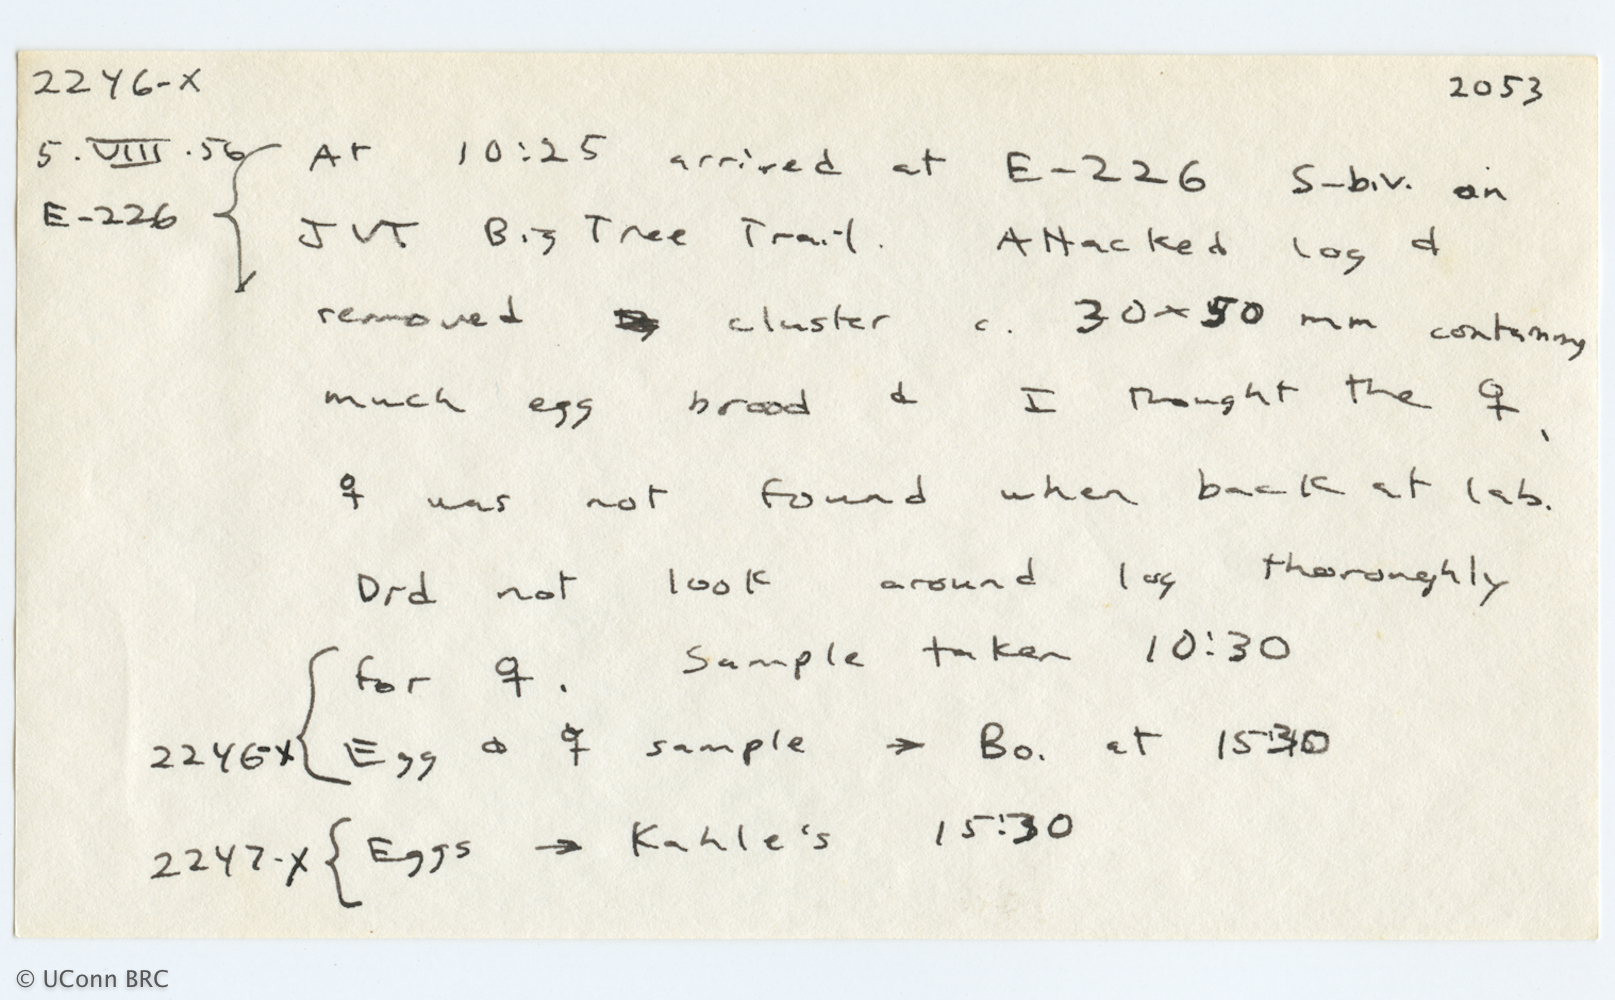 2246-X 2053
5.VIII.56 At 10:25 arrived at E-226 S-biv. on
E-226 JVT Big Tree Trail. Attacked log &
removed cluster c. 30×50 mm containing
much egg brood & I thought the ♀,
♀ was not found when back at lab.
Did not look around log thoroughly
for ♀. Sample taken 10:30
2246-X Egg & ☿ sample → Bo. at 1530
2247-X Eggs → Kahle's 15:30
© UConn BRC